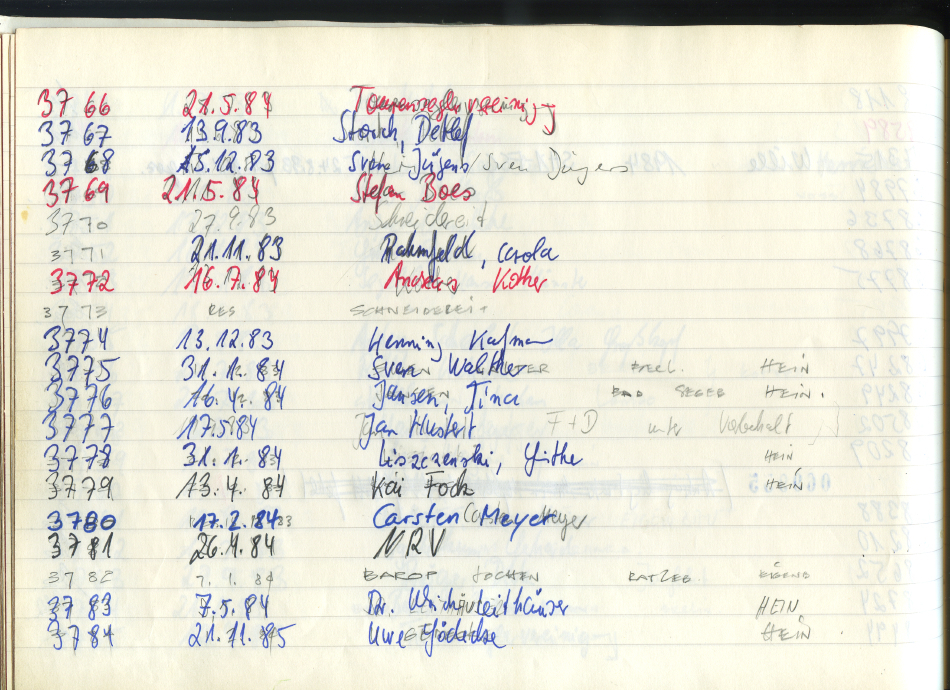 3766 21.5.84
3767 13.9.83 Storch, Detlef
3768 15.12.83 Sven Jürgens
3769 21.5.84 Stefan Boes
3770 27.9.83
3771 21.11.83 Rahmfeldt, Carola
3772 16.7.84 Andreas Köther
3773 RES SCHNEIDEREIT
3774 13.12.83 Henning
3775 31.1.84 Sven Walther HEIN
3776 16.4.84 Jansen, Tina BAD SEGEB HEIN.
3777 17.5.84 Jan F+D unter Vorbehalt
3778 31.1.84 HEIN
3779 13.4.84 Kai Fock HEIN
3780 17.2.84 Carsten Meyer
3781 26.4.84 NRV
3782 7.1.84 BAROP JOCHEN RATZEB. EIGENB
3783 7.5.84 Dr. HEIN
3784 21.11.85 Uwe HEIN